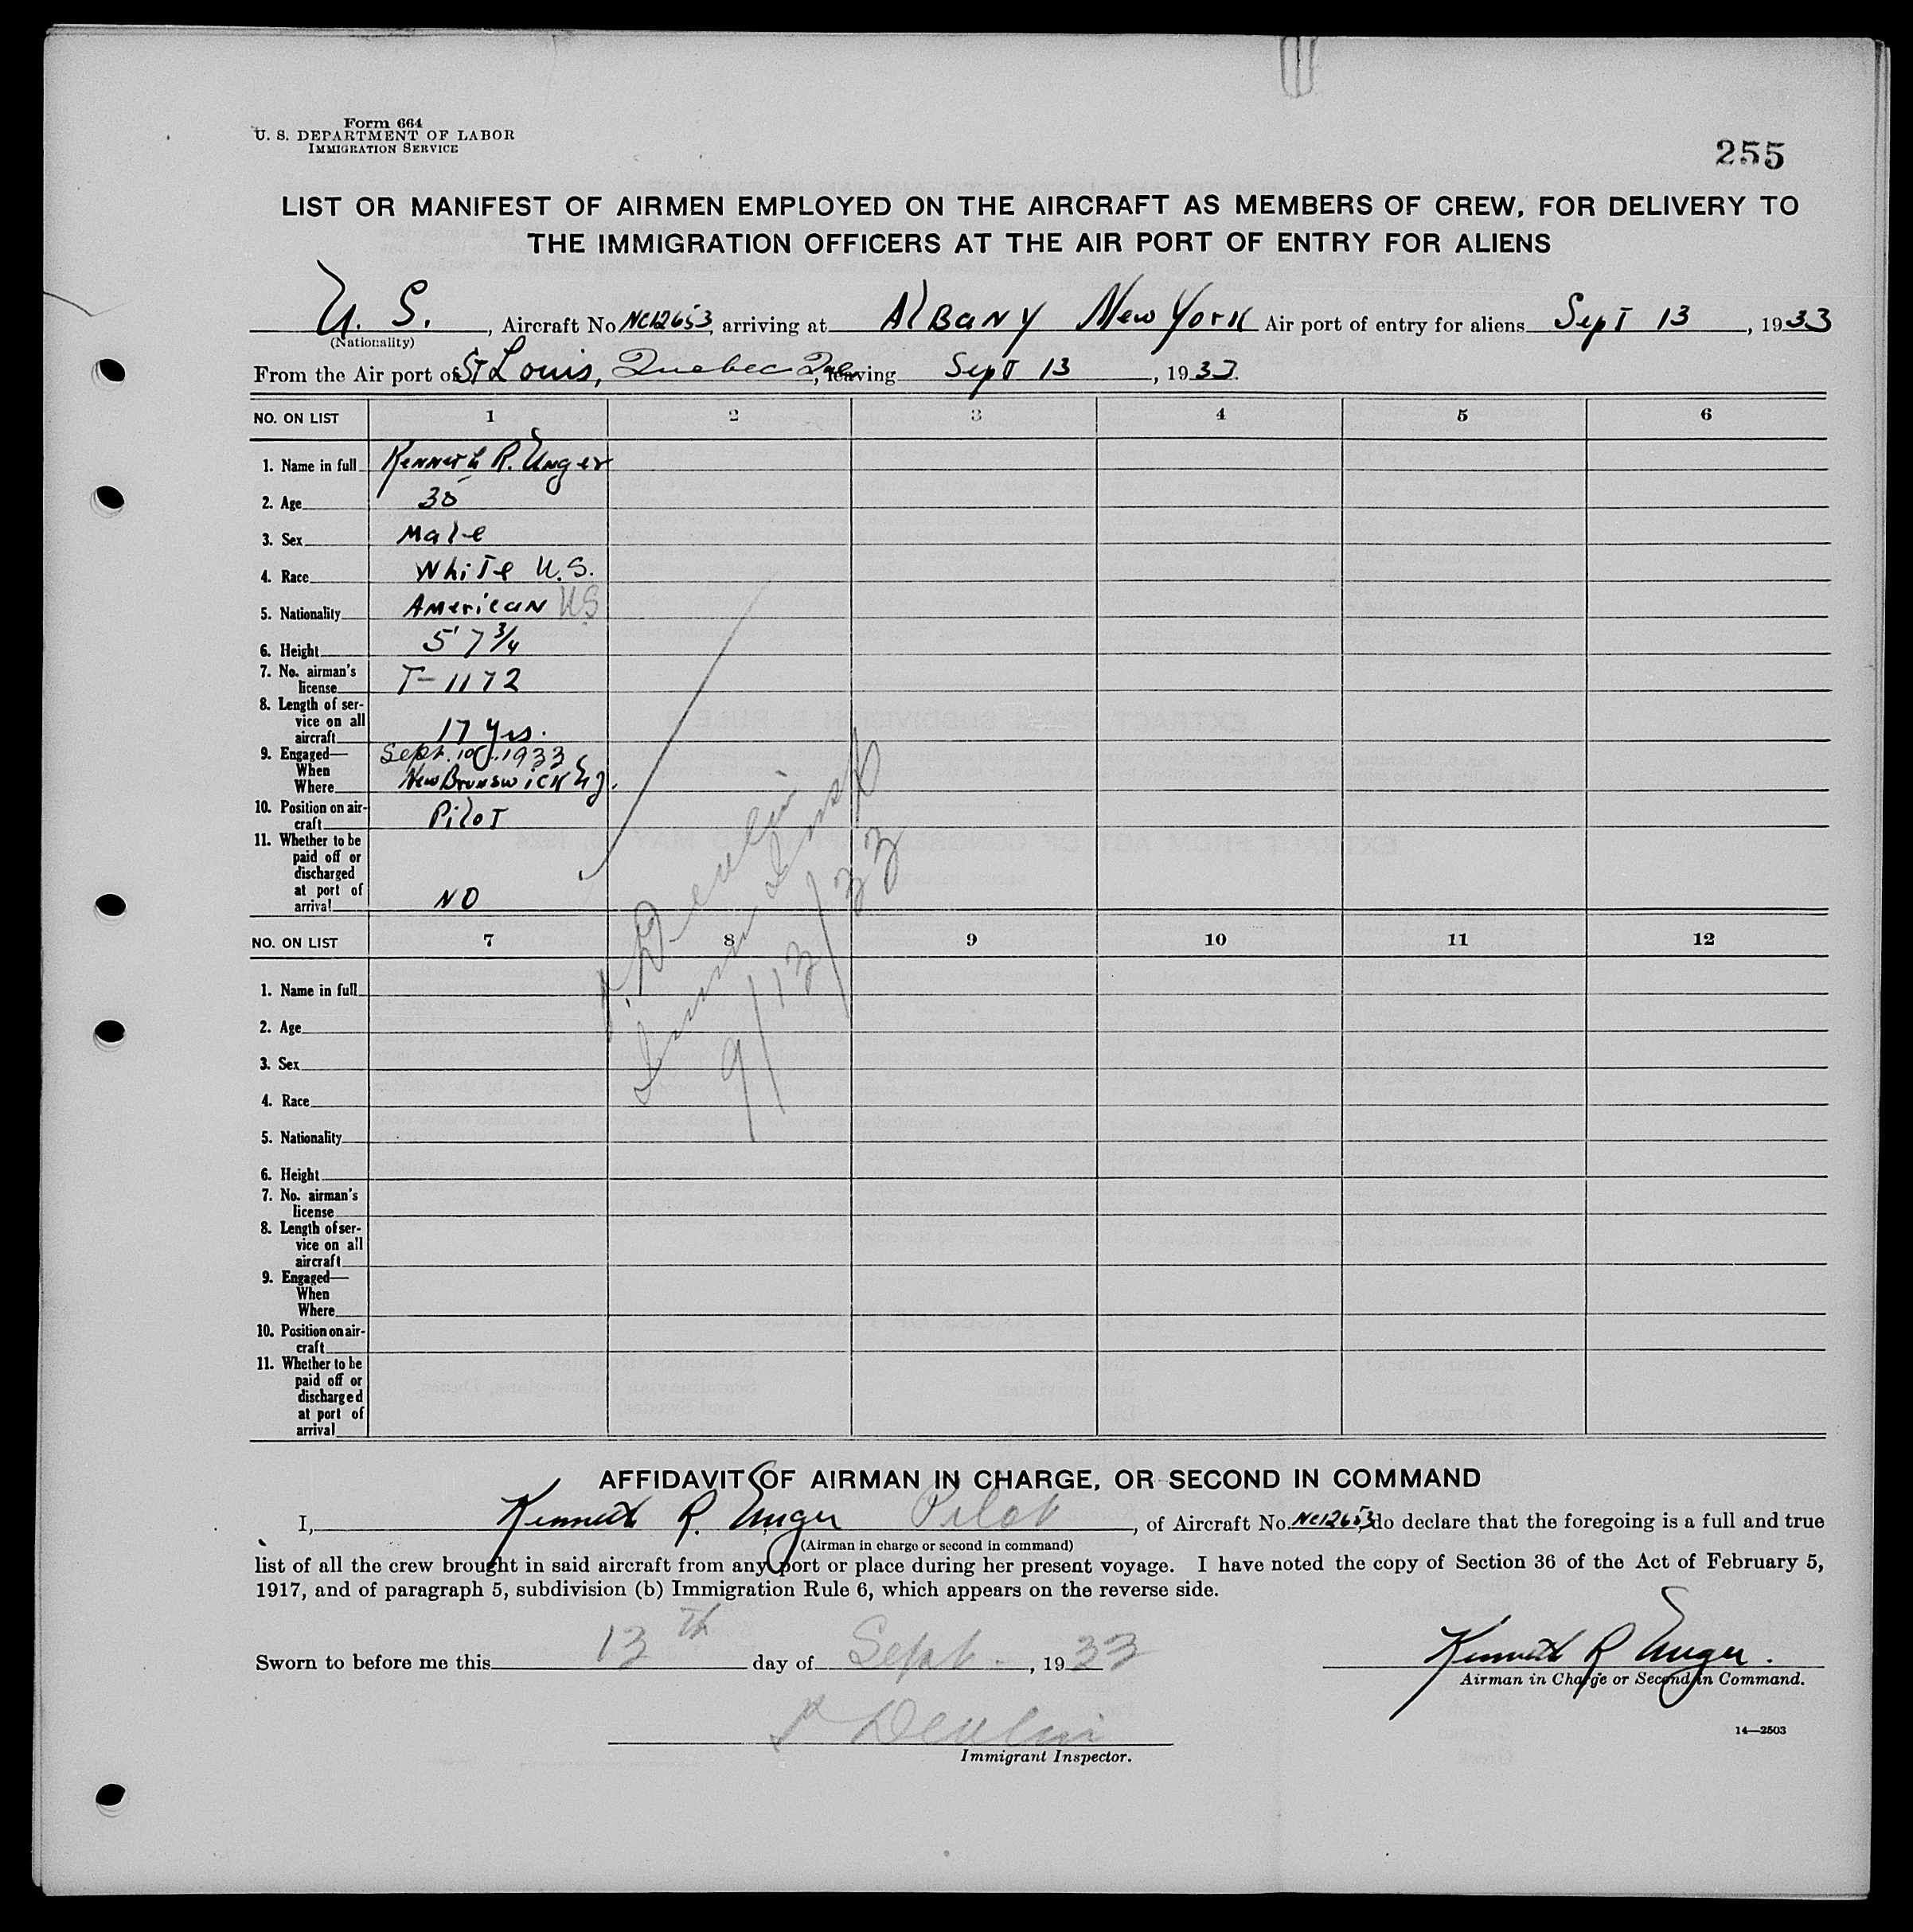 Form 664
U. S. DEPARTMENT OF LABOR
IMMIGRATION SERVICE
255
LIST OR MANIFEST OF AIRMEN EMPLOYED ON THE AIRCRAFT AS MEMBERS OF CREW, FOR DELIVERY TO
THE IMMIGRATION OFFICERS AT THE AIR PORT OF ENTRY FOR ALIENS
U. S., Aircraft No NC12653, arriving at Albany New York Air port of entry for aliens Sept 13, 1933
(Nationality)
From the Air port of St Louis, Quebec, leaving Sept 13, 1933.
NO. ON LIST 1 2 3 4 5 6
1. Name in full Kenneth R. Unger
2. Age 35
3. Sex Male
4. Race White U.S.
5. Nationality American US
6. Height 5' 7 3/4
7. No. airman's
license T-1172
8. Length of ser-
vice on all
aircraft 17 yrs.
9. Engaged—
When Sept. 10, 1933
Where New Brunswick NJ.
10. Position on air-
craft Pilot
11. Whether to be
paid off or
discharged
at port of
arrival NO
P. Devlin
Immn Inspt
9/13/33
NO. ON LIST 7 8 9 10 11 12
1. Name in full
2. Age
3. Sex
4. Race
5. Nationality
6. Height
7. No. airman's
license
8. Length of ser-
vice on all
aircraft
9. Engaged—
When
Where
10. Position on air-
craft
11. Whether to be
paid off or
discharged
at port of
arrival
AFFIDAVIT OF AIRMAN IN CHARGE, OR SECOND IN COMMAND
I, Kenneth R. Unger Pilot, of Aircraft No. NC12653, do declare that the foregoing is a full and true
(Airman in charge or second in command)
list of all the crew brought in said aircraft from any port or place during her present voyage. I have noted the copy of Section 36 of the Act of February 5,
1917, and of paragraph 5, subdivision (b) Immigration Rule 6, which appears on the reverse side.
Sworn to before me this 13th day of Sept., 1933
Kenneth R Unger.
Airman in Charge or Second in Command.
P Devlin
Immigrant Inspector.
14—2503